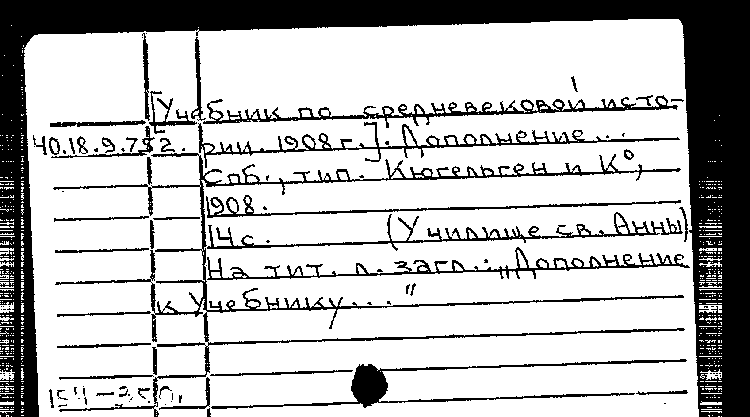 [Учебник по средневековой исто-
40.18.9.752. рии. 1908 г.]. Дополнение...
Спб., тип. Кюгельген и К°,
1908.
14 с. (Училище св. Анны).
На тит. л. загл.: „Дополнение
к Учебнику..."
154-350.